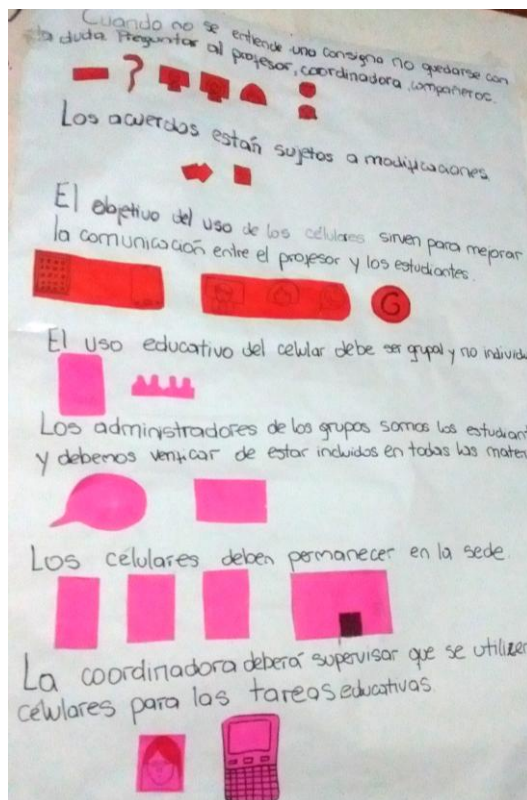 Cuando no se entiende una consigna no quedarse con
la duda. Preguntar al profesor, coordinadora, compañeros.
Los acuerdos están sujetos a modificaciones
El objetivo del uso de los célulares sirven para mejorar
la comunicación entre el profesor y los estudiantes.
G
El uso educativo del celular debe ser grupal y no
Los administradores de los grupos somos los
y debemos verificar de estar incluidos en todas las
Los célulares deben permanecer en la sede.
La coordinadora deberá supervisar que se
célulares para las tareas educativas.